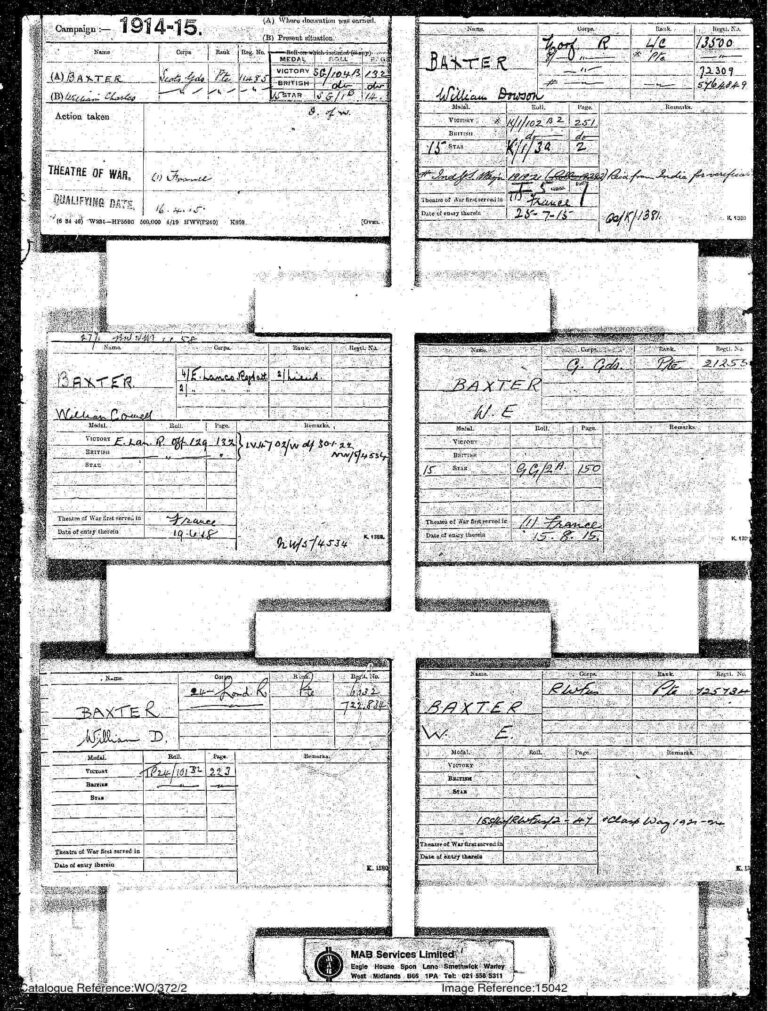 Campaign :— 1914-15.
(A) Where decoration was earned.
(B) Present situation.
Name Corps Rank Reg. No. Roll on which included (if any)
MEDAL ROLL PAGE
(A) BAXTER Scots Gds Pte 11485 VICTORY SG/104B 132
(B) William Charles BRITISH do do
STAR SG/1B 14.
Action taken
THEATRE OF WAR. (1) France
QUALIFYING DATE. 16.4.15.
(6 34 46) W234—HP5590 500,000 4/19 HWV(P240) K608. [Over.
Name. Corps. Rank. Regtl. No.
BAXTER R L/C 13500
" Pte "
" " 72309
" " 5764849
William Dowson
Medal. Roll. Page. Remarks.
VICTORY K/1/102 B2 251
BRITISH do do
15 STAR K/1/3A 2
Recd from India for
Theatre of War first served in (1) France
Date of entry therein 25-7-15
K. 1380
Name. Corps. Rank. Regtl. No.
BAXTER 4/E. Lancs Regt 2/Lieut.
2/ " " "
William
Medal. Roll. Page. Remarks.
VICTORY E. Lan. R. Off. 129 132
BRITISH " "
STAR
NW/5/4534
Theatre of War first served in France
Date of entry therein 19.6.18
NW/5/4534
K. 1380.
Name. Corps. Rank. Regtl. No.
G. Gds. Pte 21253
BAXTER
W. E
Medal. Roll. Page. Remarks.
VICTORY
BRITISH
15 STAR GG/2A 150
Theatre of War first served in (1) France
Date of entry therein 15.8.15.
Name. Corps. Rank. Regtl. No.
24 Lond R Pte 6732
722.834
BAXTER
William D.
Medal. Roll. Page. Remarks.
VICTORY TP24/101B2 223
BRITISH " "
STAR
Theatre of War first served in
Date of entry therein
K. 1380
Name. Corps. Rank. Regtl. No.
R W Fus Pte
BAXTER
W. E.
Medal. Roll. Page. Remarks.
VICTORY
BRITISH
STAR
Theatre of War first served in
Date of entry therein
MAB Services Limited
Eagle House Spon Lane Smethwick Warley
West Midlands B66 1PA Tel: 021 558 5311
Catalogue Reference:WO/372/2 Image Reference:15042